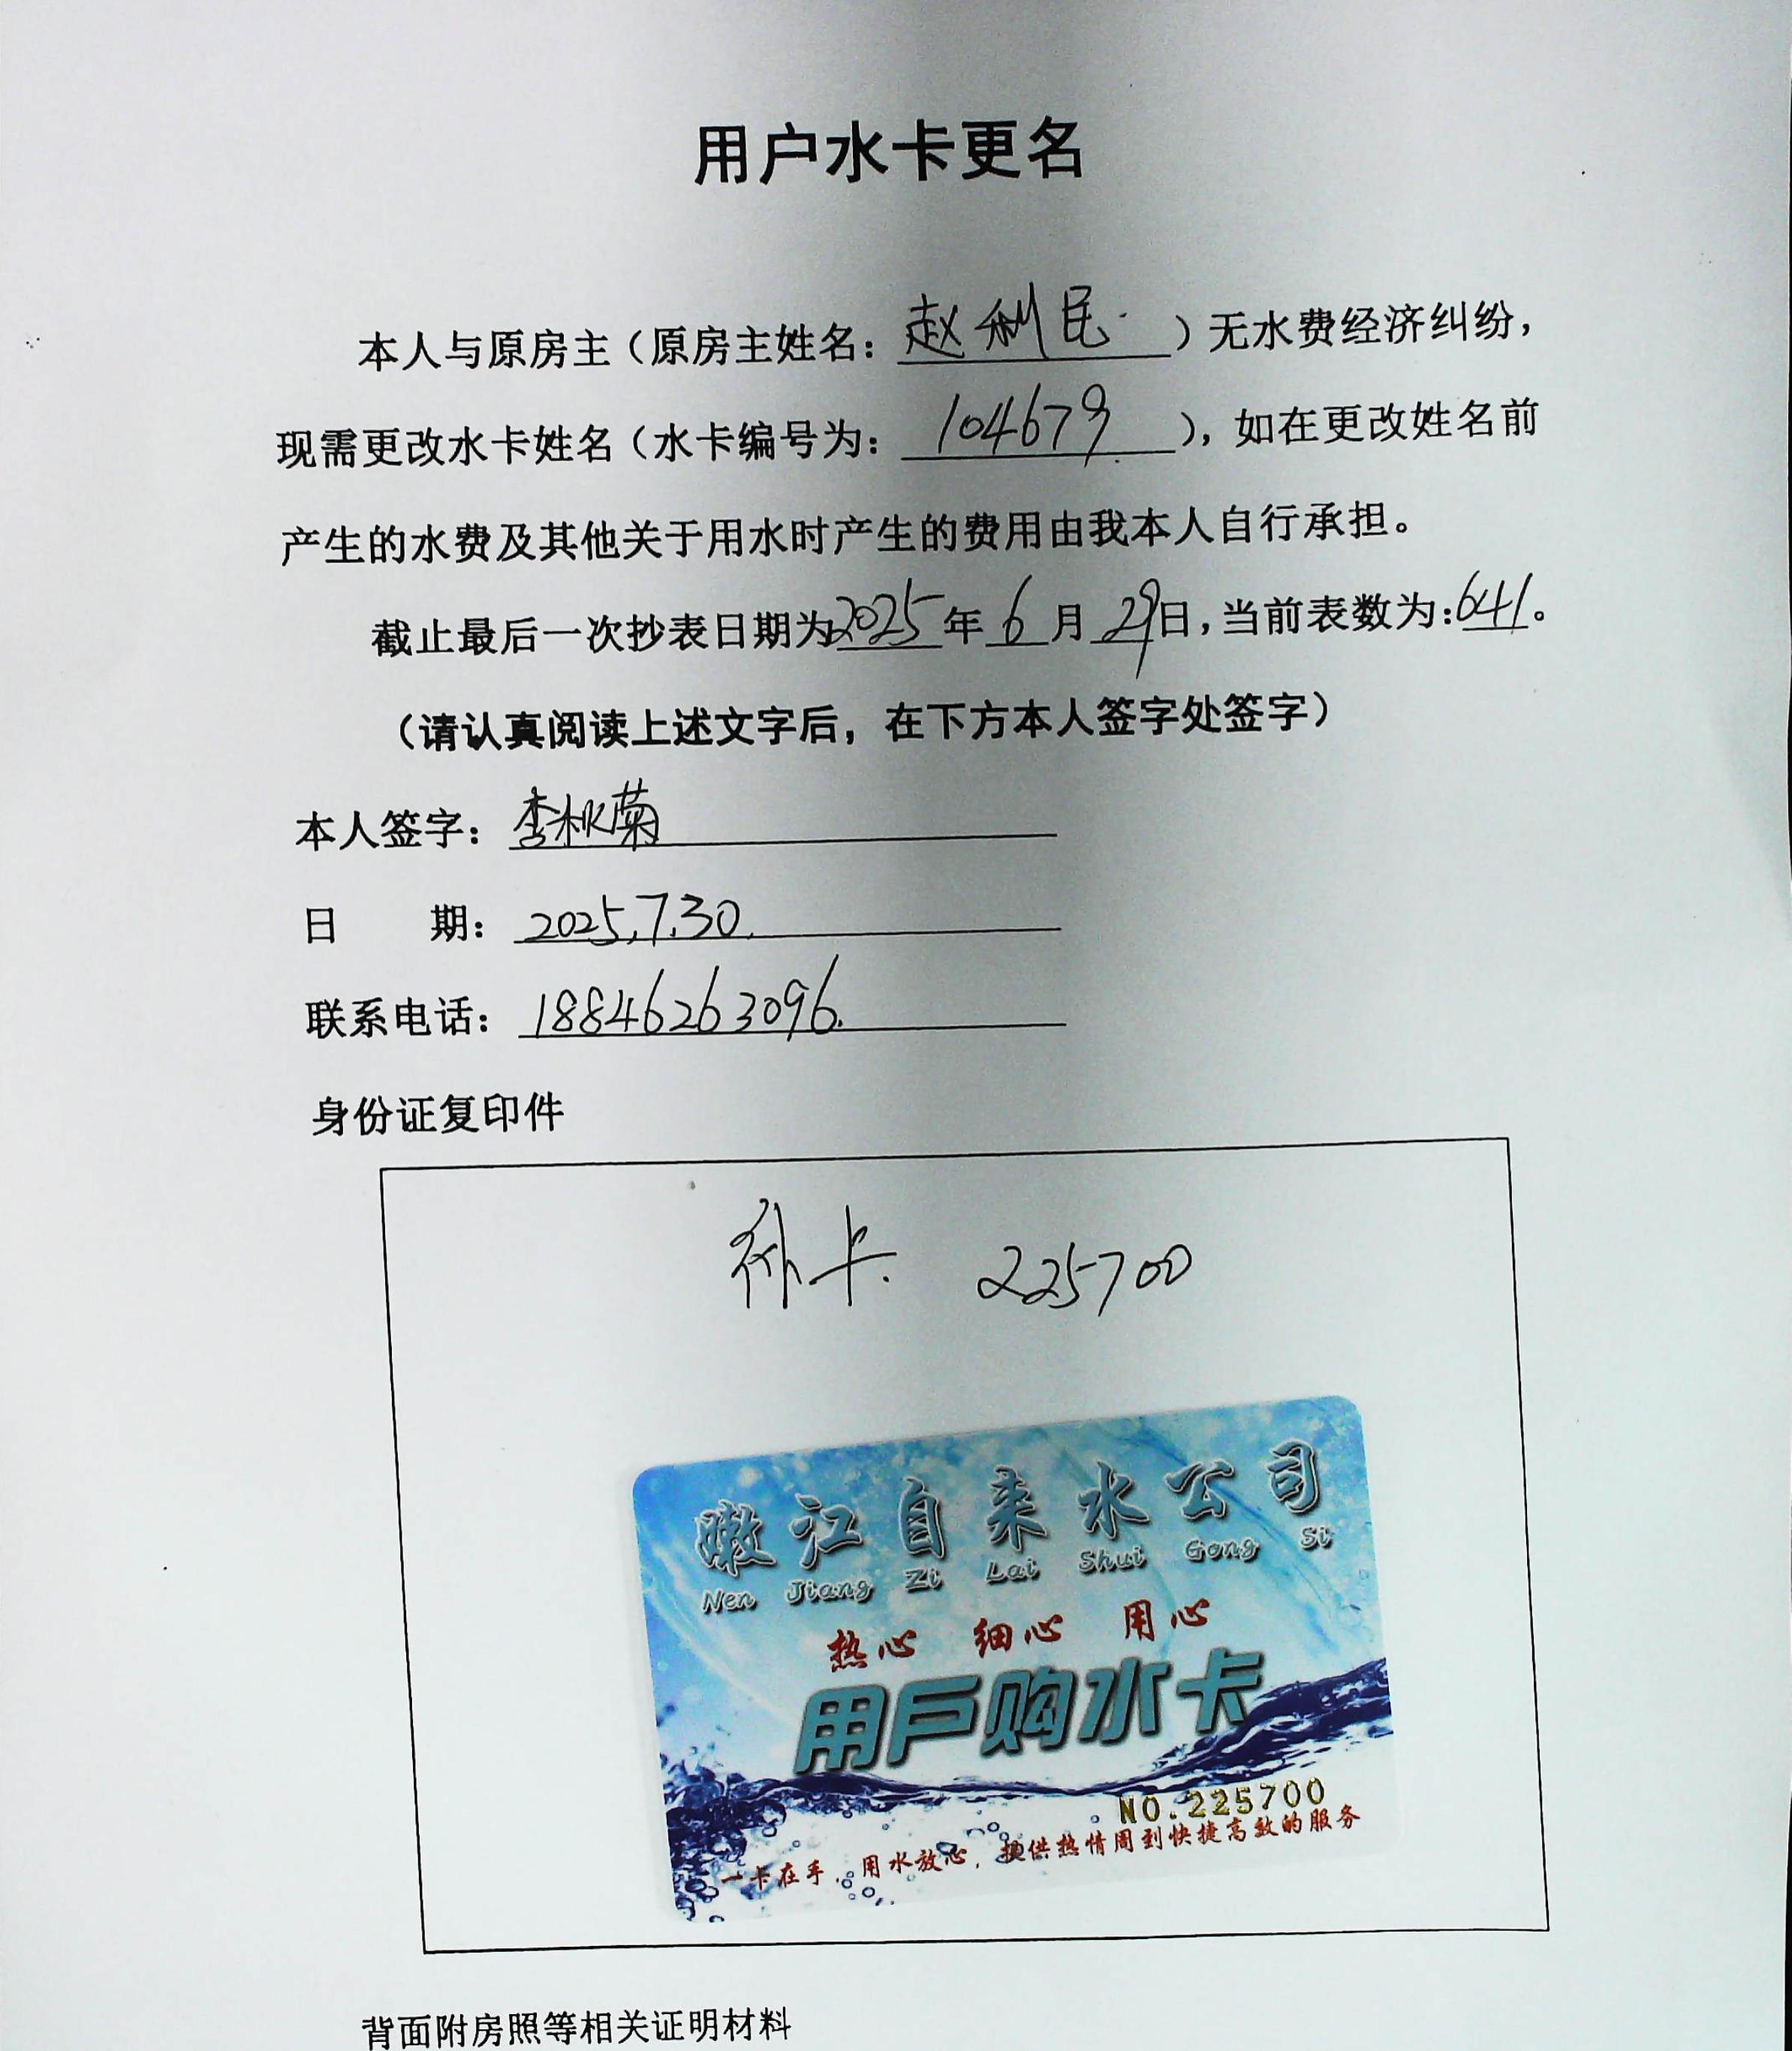 用户水卡更名
本人与原房主（原房主姓名：赵利民）无水费经济纠纷，
现需更改水卡姓名（水卡编号为：104679），如在更改姓名前
产生的水费及其他关于用水时产生的费用由我本人自行承担。
截止最后一次抄表日期为2025年6月29日，当前表数为：641。
（请认真阅读上述文字后，在下方本人签字处签字）
本人签字：李秋菊
日 期：2025.7.30.
联系电话：18846263096.
身份证复印件
补卡. 225700
嫩江自来水公司
Nen Jiang Zi Lai Shui Gong Si
热心 细心 用心
用户购水卡
NO.225700
一卡在手，用水放心，提供热情周到快捷高效的服务
背面附房照等相关证明材料